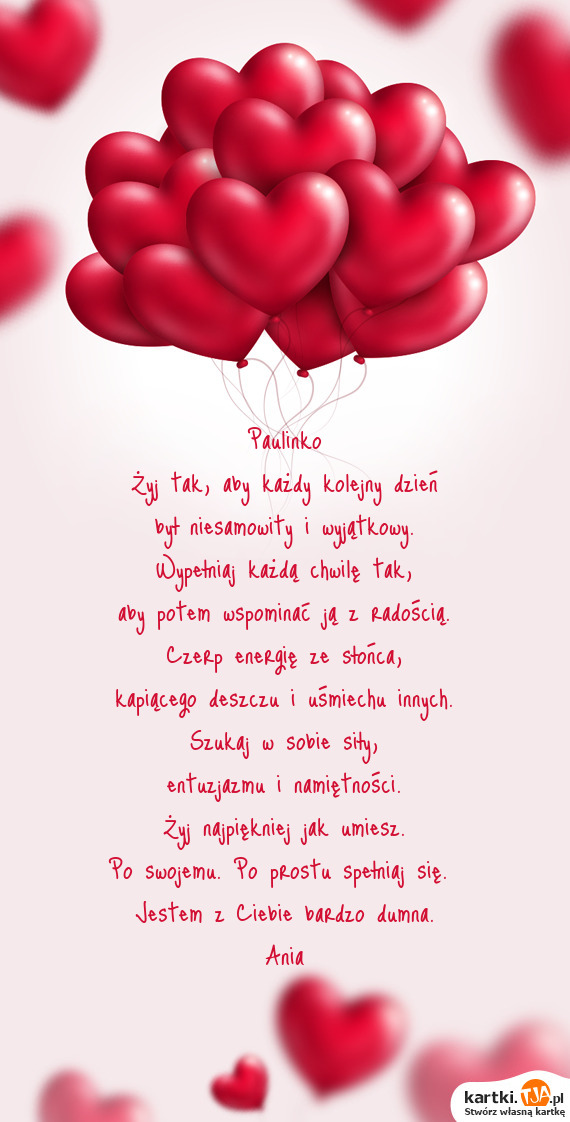 Paulinko
Żyj tak, aby każdy kolejny dzień
był niesamowity i wyjątkowy.
Wypełniaj każdą chwilę tak,
aby potem wspominać ją z radością.
Czerp energię ze słońca,
kapiącego deszczu i uśmiechu innych.
Szukaj w sobie siły,
entuzjazmu i namiętności.
Żyj najpiękniej jak umiesz.
Po swojemu. Po prostu spełniaj się.
Jestem z Ciebie bardzo dumna.
Ania
kartki.TJA.pl
Stwórz własną kartkę